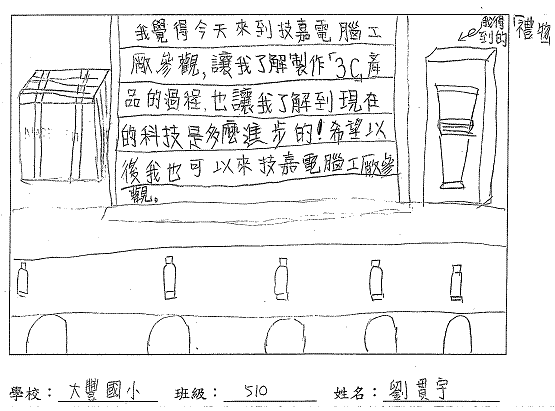 我覺得今天來到技嘉電腦工
廠參觀,讓我了解製作「3C」產
品的過程,也讓我了解到現在
的科技是多麼進步的!希望以
後我也可以來技嘉電腦工廠參
觀。
獲得
到的
禮物
學校: 大豐國小 班級: 510 姓名: 劉貫宇